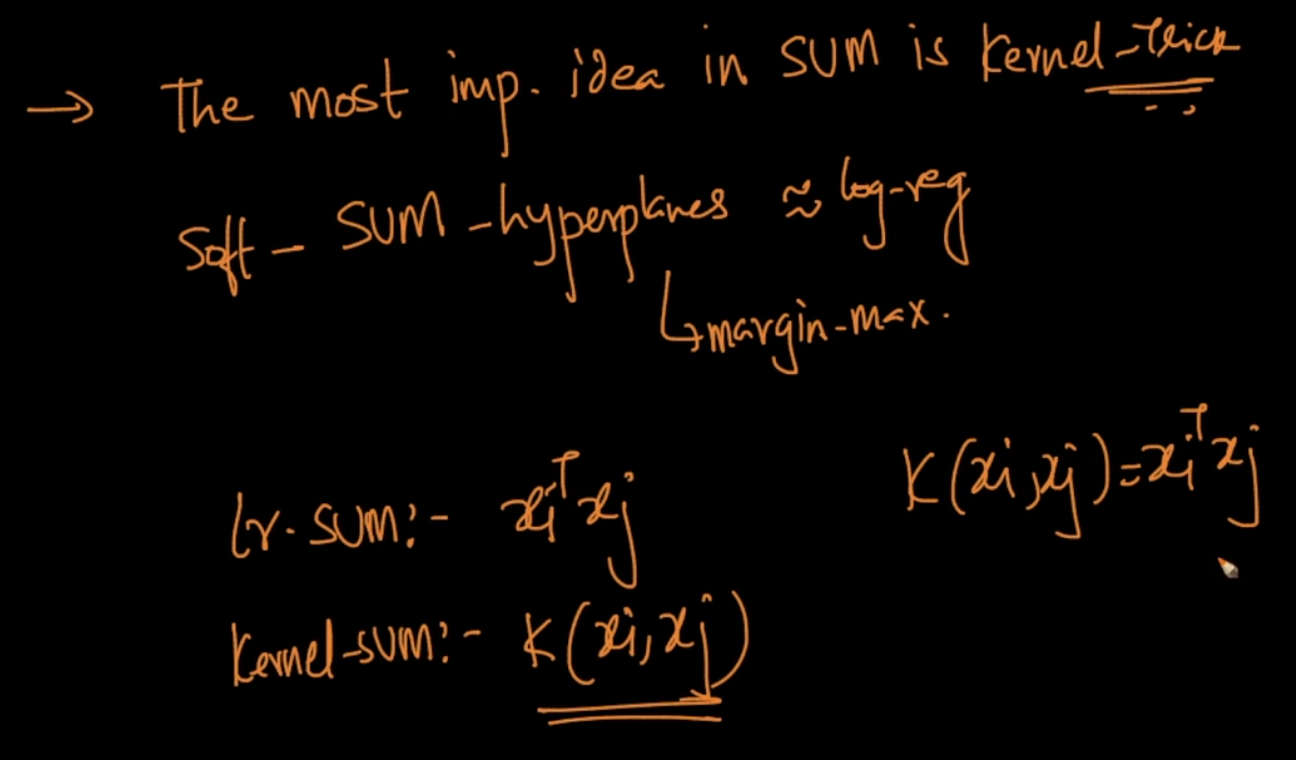 → The most imp. idea in SVM is Kernel-Trick
Soft - SVM - hyperplanes ≈ log-reg
↳ margin-max.
lr. SVM:- xiᵀxj
K(xi, xj) = xiᵀxj
Kernel-SVM:- K(xi, xj)